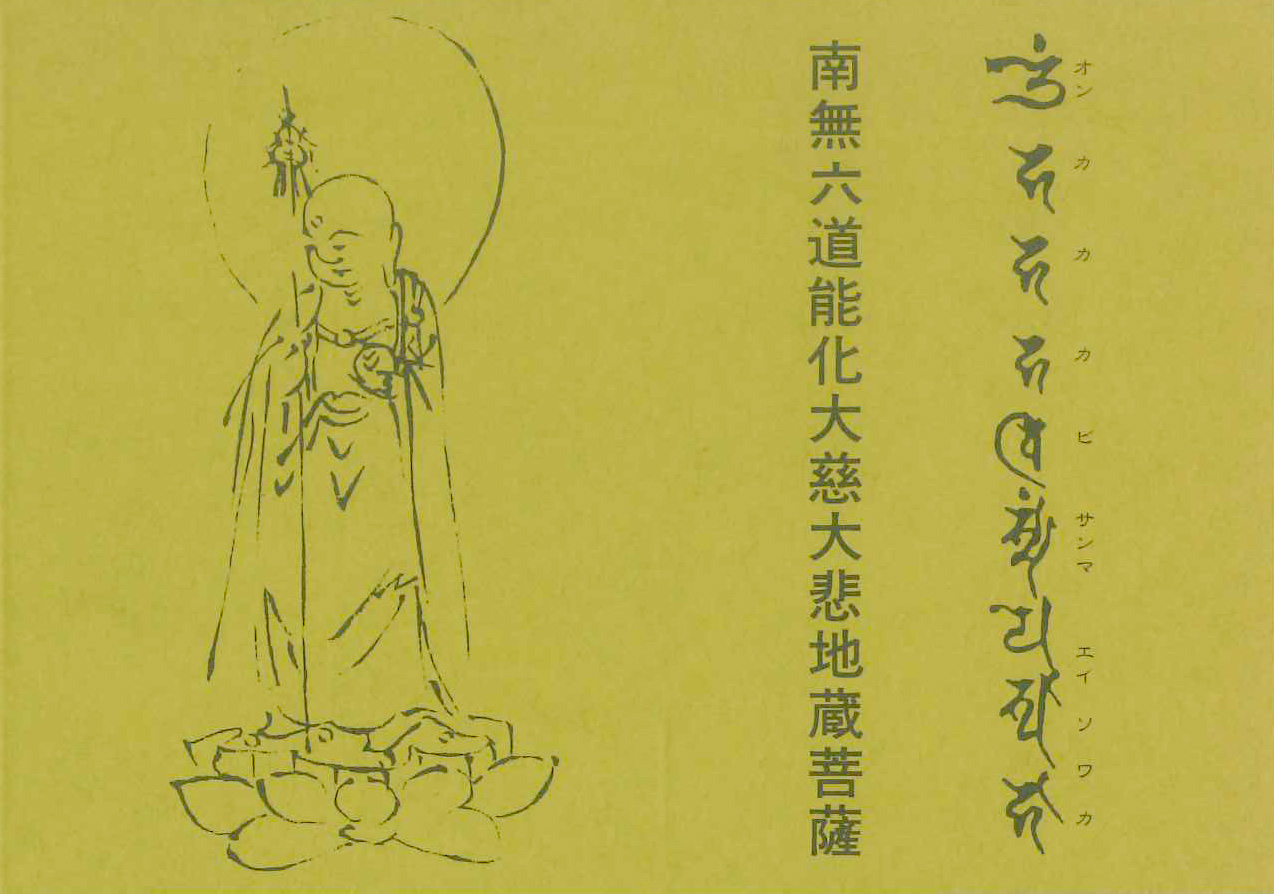 𑖌𑖼 𑖮 𑖮 𑖮 𑖪𑖰 𑖧𑖸 𑖭𑖿𑖪𑖯 𑖮𑖯
オン カ カ カ ビ サンマ エイ ソ ワ カ
南無六道能化大慈大悲地蔵菩薩